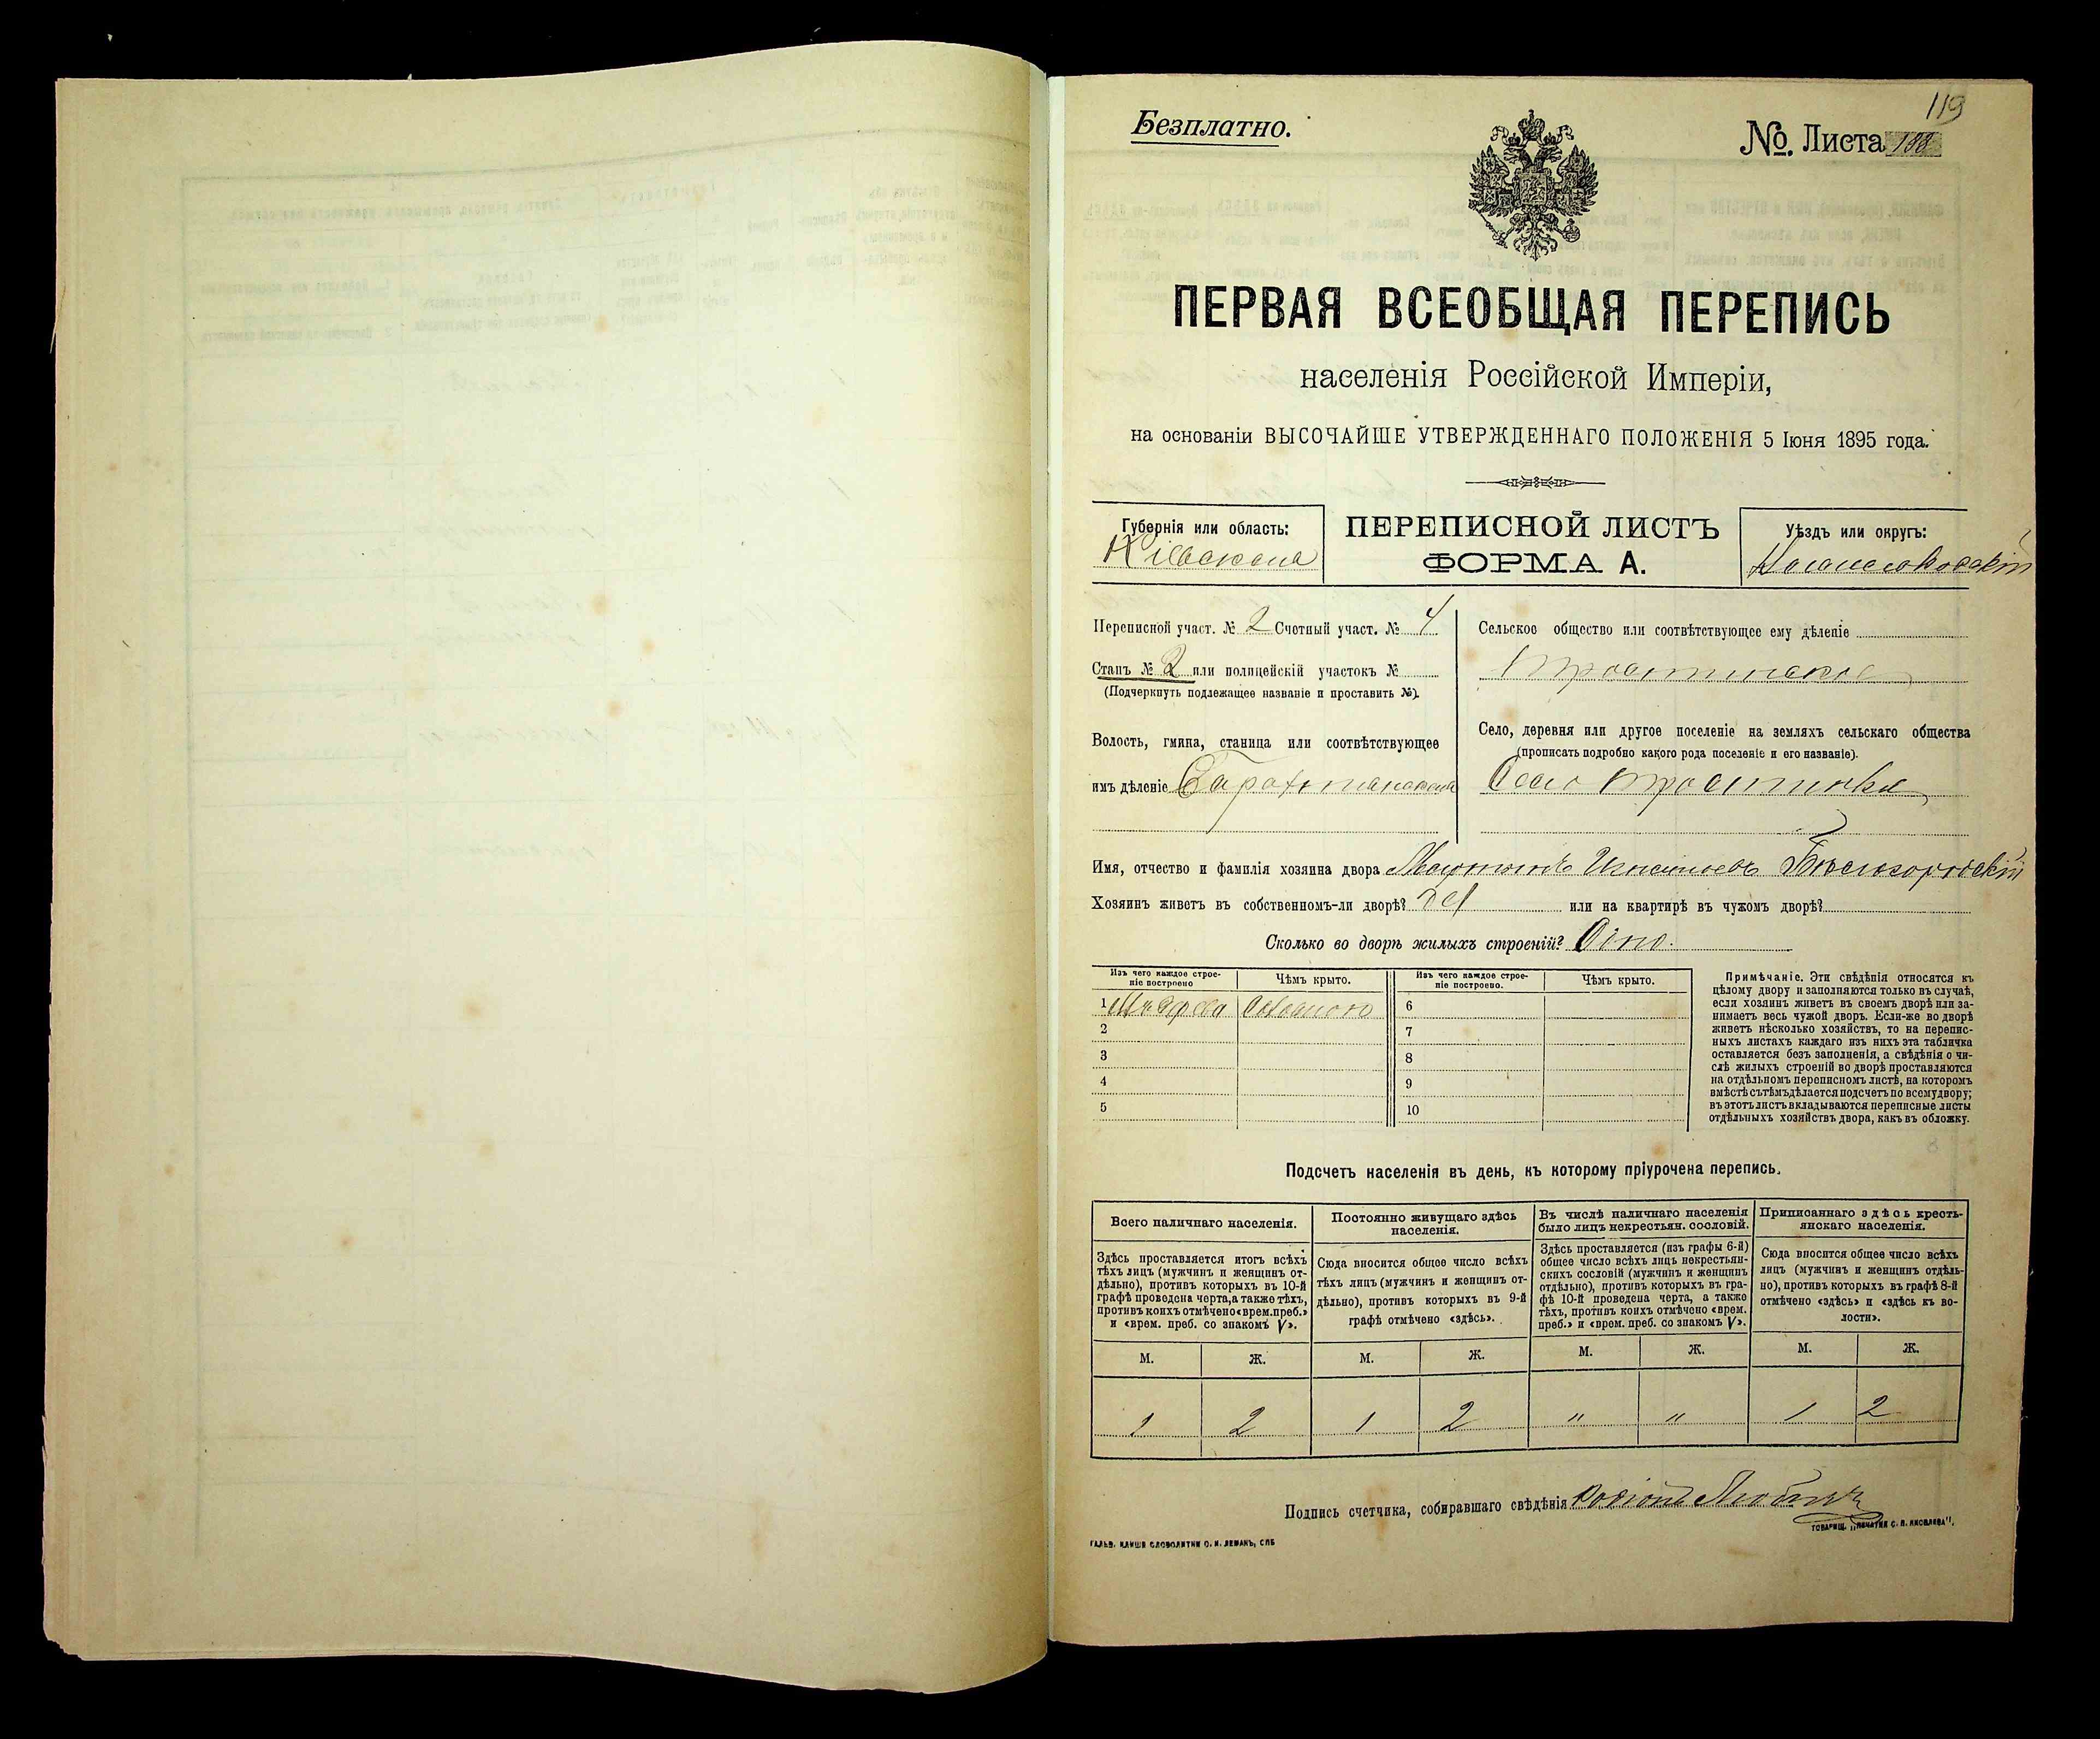 119
Безплатно.
№. Листа 198
ПЕРВАЯ ВСЕОБЩАЯ ПЕРЕПИСЬ
населенія Россійской Имперіи,
на основаніи ВЫСОЧАЙШЕ УТВЕРЖДЕННАГО ПОЛОЖЕНІЯ 5 Іюня 1895 года.
Губернія или область:
Кіевская
ПЕРЕПИСНОЙ ЛИСТЪ
ФОРМА А.
Уѣздъ или округъ:
Переписной участ. № 2 Счетный участ. № 4
Станъ № 2 или полицейскій участокъ №
(Подчеркнуть подлежащее названіе и проставить №).
Волость, гмина, станица или соотвѣтствующее
имъ дѣленіе
Сельское общество или соотвѣтствующее ему дѣленіе
Тростинское
Село, деревня или другое поселеніе на земляхъ сельскаго общества
(прописать подробно какого рода поселеніе и его названіе).
Село Тростинка
Имя, отчество и фамилія хозяина двора Мартинъ Игнатьевъ Бѣлогородскій
Хозяинъ живетъ въ собственномъ-ли дворѣ? Да или на квартирѣ въ чужомъ дворѣ?
Сколько во дворѣ жилыхъ строеній? Одно.
Изъ чего каждое строе-
ніе построено
Чѣмъ крыто.
Изъ чего каждое строе-
ніе построено.
Чѣмъ крыто.
1 Изъ дерева Соломою
2
3
4
5
6
7
8
9
10
Примѣчаніе. Эти свѣдѣнія относятся къ
цѣлому двору и заполняются только въ случаѣ,
если хозяинъ живетъ въ своемъ дворѣ или за-
нимаетъ весь чужой дворъ. Если-же во дворѣ
живетъ нѣсколько хозяйствъ, то на перепис-
ныхъ листахъ каждаго изъ нихъ эта табличка
оставляется безъ заполненія, а свѣдѣнія о чи-
слѣ жилыхъ строеній во дворѣ проставляются
на отдѣльномъ переписномъ листѣ, на которомъ
вмѣстѣ съ тѣмъ дѣлается подсчетъ по всему двору;
въ этотъ листъ вкладываются переписные листы
отдѣльныхъ хозяйствъ двора, какъ въ обложку.
Подсчетъ населенія въ день, къ которому пріурочена перепись.
Всего наличнаго населенія.
Здѣсь проставляется итогъ всѣхъ
тѣхъ лицъ (мужчинъ и женщинъ от-
дѣльно), противъ которыхъ въ 10-й
графѣ проведена черта, а также тѣхъ,
противъ коихъ отмѣчено «врем. преб.»
и «врем. преб. со знакомъ V».
Постоянно живущаго здѣсь
населенія.
Сюда вносится общее число всѣхъ
тѣхъ лицъ (мужчинъ и женщинъ от-
дѣльно), противъ которыхъ въ 9-й
графѣ отмѣчено «здѣсь».
Въ числѣ наличнаго населенія
было лицъ некрестьян. сословій.
Здѣсь проставляется (изъ графы 6-й)
общее число всѣхъ лицъ некрестьян-
скихъ сословій (мужчинъ и женщинъ
отдѣльно), противъ которыхъ въ гра-
фѣ 10-й проведена черта, а также
тѣхъ, противъ коихъ отмѣчено «врем.
преб.» и «врем. преб. со знакомъ V».
Приписаннаго здѣсь кресть-
янскаго населенія.
Сюда вносится общее число всѣхъ
лицъ (мужчинъ и женщинъ отдѣль-
но), противъ которыхъ въ графѣ 8-й
отмѣчено «здѣсь» и «здѣсь къ во-
лости».
М. Ж. М. Ж. М. Ж. М. Ж.
1 2 1 2 " " 1 2
Подпись счетчика, собиравшаго свѣдѣнія
ТОВАРИЩ. „ПЕЧАТНИ С. П. ЯКОВЛЕВА".
ГАЛЬВ. КЛИШЕ СЛОВОЛИТНИ О. И. ЛЕМАНЪ, СПБ